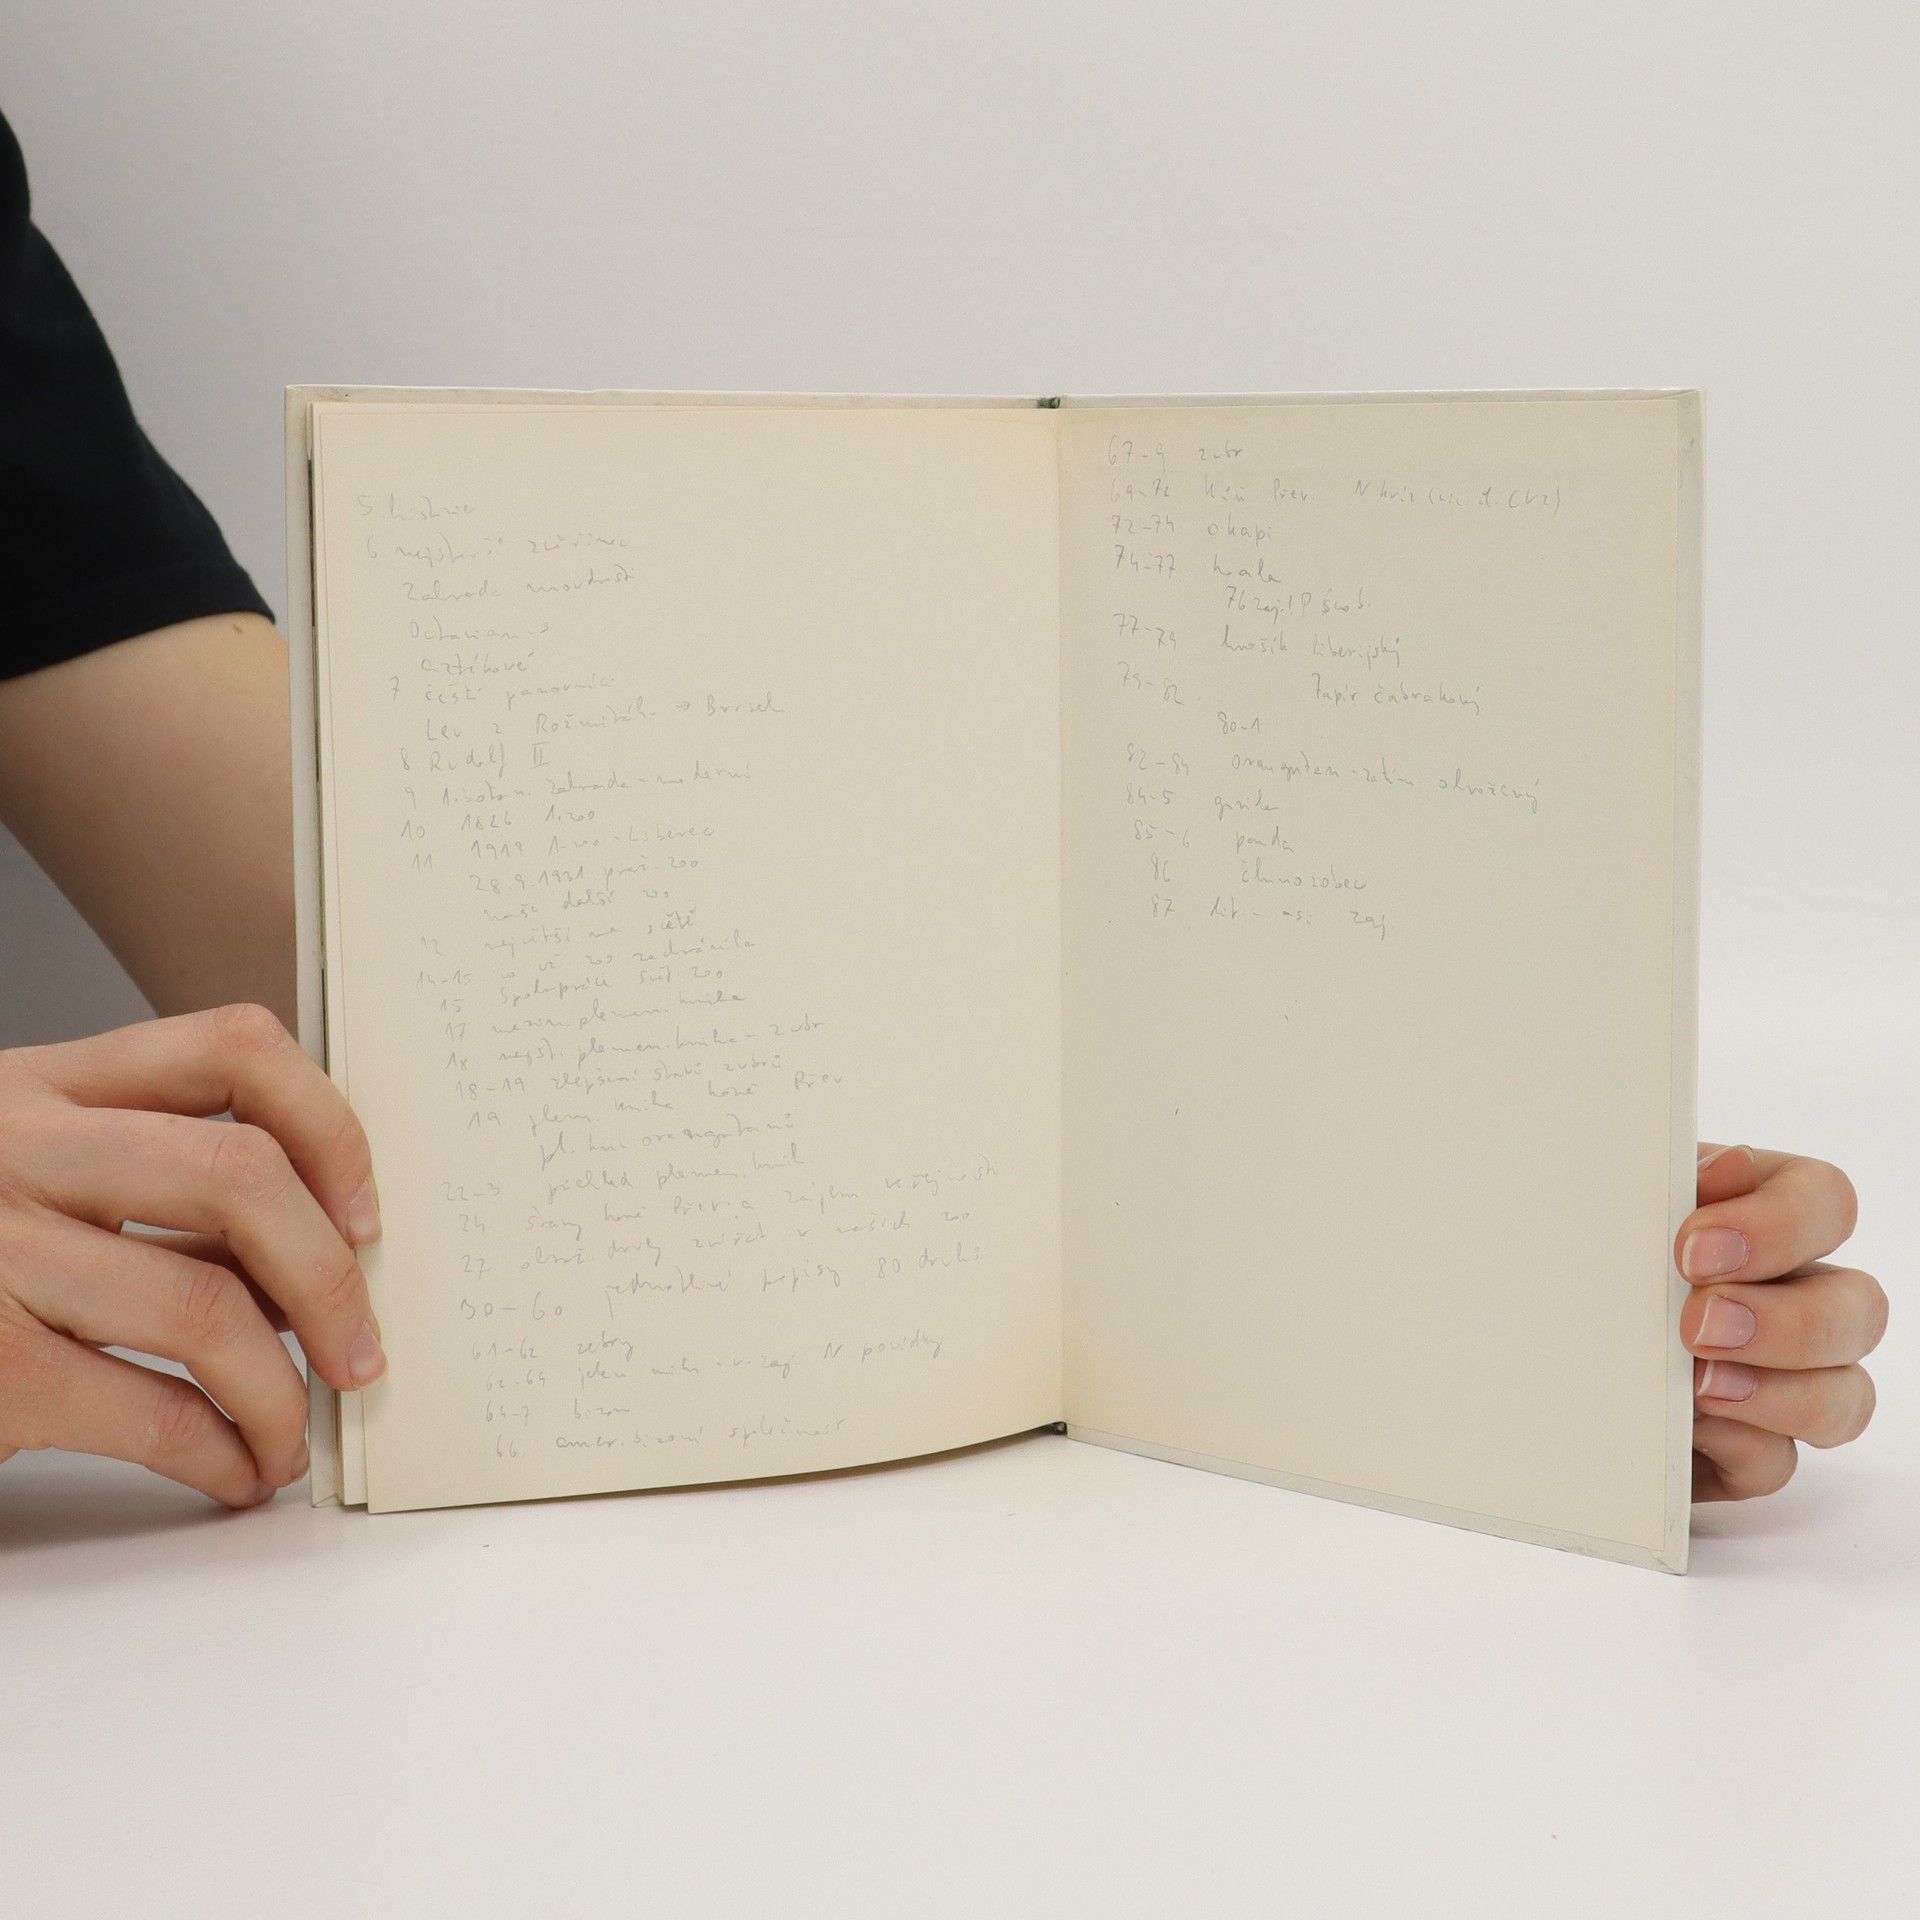 5 historie
6 nejstarší zvěřinec
Zahrada moudrosti
Octavianus
aztékové
7 čeští panovníci
Lev z Rožmitálu → Brusel
8 Rudolf II
9 1. botan. zahrada - moderní
10 1826 1. zoo
11 1919 1. zoo - Liberec
28.9.1931 praž. zoo
naše další zoo
12 největší na světě
14-15 co vš zoo zachránila
15 Spolupráce svět. zoo
17 mezin. plemen. kniha
18 nejst. plemen. kniha - zubr
18-19 zlepšení stavů zubrů
19 plem. kniha koně Přev
pl. kn. orangutanů
22-3 přehled plemen. knih
24 stavy koně Přev. a zájem veřejnosti
27 ohrož. druhy zvířat v našich zoo
30-60 jednotlivé popisy 80 druhů
61-62 zebry
62-64 jelen milu - v. zaj N povídky
64-7 bizon
66 amer. bizoní společnost
67-9 zubr
69-72 kůň Přev. N kvíz
72-74 okapi
74-77 koala
76 zaj! P
77-79 hrošík liberijský
79-82 Tapír čabrakový
80-1
82-84 orangutan - zatím ohrožený
84-5 gorila
85-6 panda
86 člunozobec
87 lit. - asi zaj